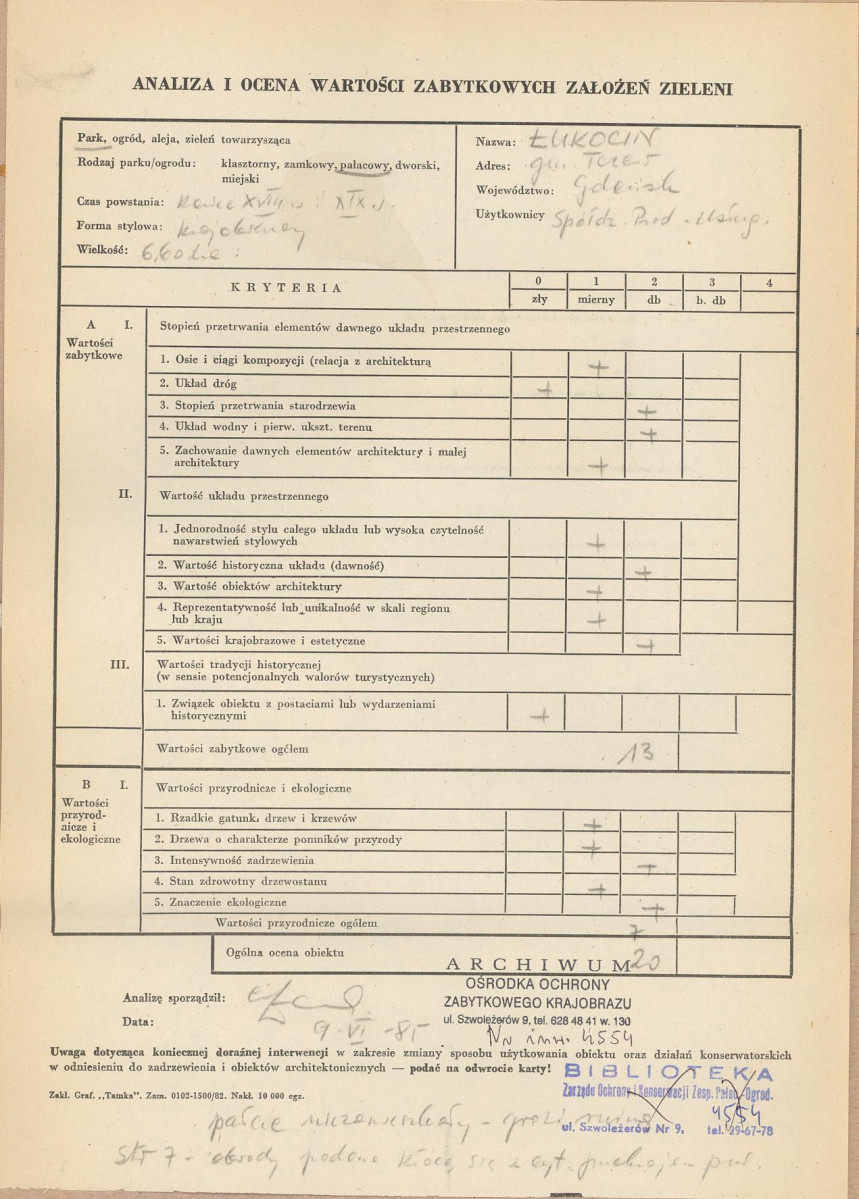 ANALIZA I OCENA WARTOŚCI ZABYTKOWYCH ZAŁOŻEŃ ZIELENI
Park, ogród, aleja, zieleń towarzysząca
Rodzaj parku/ogrodu: klasztorny, zamkowy, pałacowy, dworski,
miejski
Czas powstania: koniec XVIII w i XIX w.
Forma stylowa: krajobrazowy
Wielkość: 6,60 ha
Nazwa: ŁUKOCIN
Adres: gm. Tczew
Województwo: Gdańsk
Użytkownicy Spółdz. Prod. - Usług.
KRYTERIA
0 1 2 3 4
zły mierny db b. db
A I. Stopień przetrwania elementów dawnego układu przestrzennego
Wartości
zabytkowe
1. Osie i ciągi kompozycji (relacja z architekturą +
2. Układ dróg +
3. Stopień przetrwania starodrzewia +
4. Układ wodny i pierw. ukszt. terenu +
5. Zachowanie dawnych elementów architektury i małej
architektury +
II. Wartość układu przestrzennego
1. Jednorodność stylu całego układu lub wysoka czytelność
nawarstwień stylowych +
2. Wartość historyczna układu (dawność) +
3. Wartość obiektów architektury +
4. Reprezentatywność lub unikalność w skali regionu
lub kraju +
5. Wartości krajobrazowe i estetyczne +
III. Wartości tradycji historycznej
(w sensie potencjonalnych walorów turystycznych)
1. Związek obiektu z postaciami lub wydarzeniami
historycznymi +
Wartości zabytkowe ogółem 13
B I. Wartości przyrodnicze i ekologiczne
Wartości
przyrod-
nicze i
ekologiczne
1. Rzadkie gatunki drzew i krzewów +
2. Drzewa o charakterze pomników przyrody +
3. Intensywność zadrzewienia +
4. Stan zdrowotny drzewostanu +
5. Znaczenie ekologiczne +
Wartości przyrodnicze ogółem 7
Ogólna ocena obiektu 20
ARCHIWUM
OŚRODKA OCHRONY
ZABYTKOWEGO KRAJOBRAZU
ul. Szwoleżerów 9, tel. 628 48 41 w. 130
Nr inw. 4554
Analizę sporządził:
Data: 9-VI-85
Uwaga dotycząca koniecznej doraźnej interwencji w zakresie zmiany sposobu użytkowania obiektu oraz działań konserwatorskich
w odniesieniu do zadrzewienia i obiektów architektonicznych — podać na odwrocie karty!
BIBLIOTEKA
Zarządu Ochrony i Konserwacji Zesp. Pałac.-Ogrod.
4554
ul. Szwoleżerów Nr 9, tel. 29-67-78
Zakł. Graf. „Tamka". Zam. 0102-1500/82. Nakł. 10 000 egz.
pałac niezamieszkały - grozi ruiną
Str 7 - podane kłócą się z